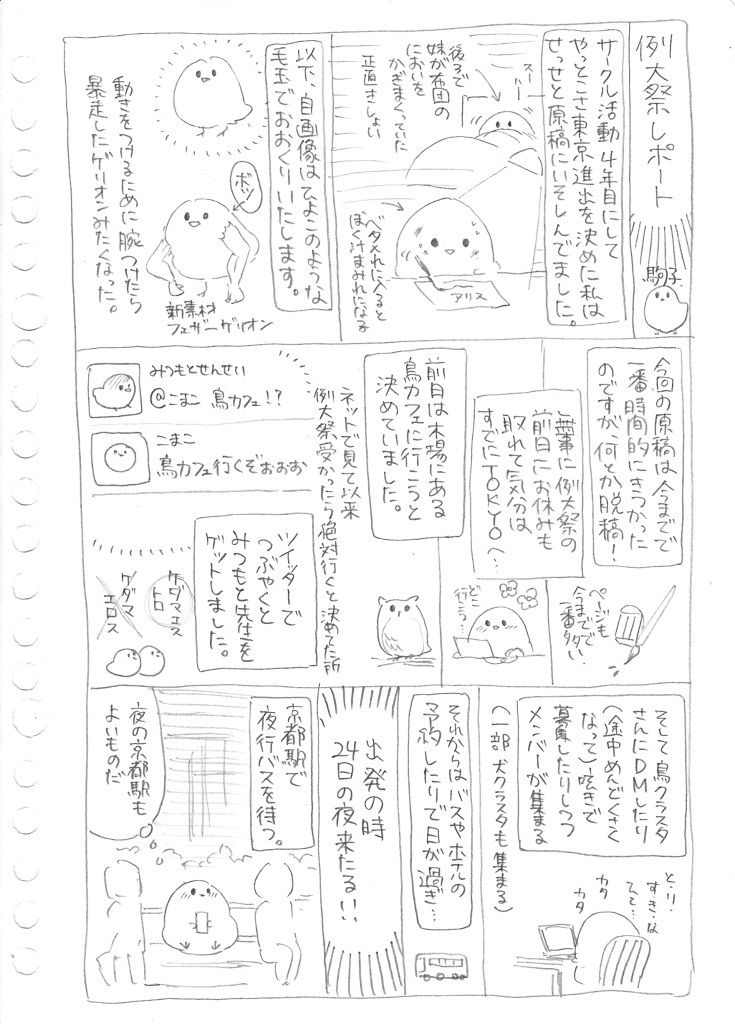 例大祭レポート
駒子
サークル活動4年目にして
やっとこさ東京進出を決めた私は
せっせと原稿にいそしんでました。
スー
後ろで
妹が布団の
においを
かぎまくっていた
正直きしょい
ベタ入れに入ると
ぼく汁まみれになる
アリス
以下、自画像はひよこのような
毛玉でおおくりいたします。
ボッ
新素材
フェザーゲリオン
動きをつけるために腕つけたら
暴走したゲリオンみたくなった。
今回の原稿は今までで
一番時間的にきつかった
のですが、何とか脱稿!
ページも
今までで
一番多い。
無事に例大祭の
前日にお休みも
取れて気分は
すでにTOKYOへ…
どこ
行こう?
前日は木場にある
鳥カフェに行こうと
決めていました。
ネットで見て以来
例大祭受かったら絶対行くと決めてた所
みつもとせんせい
@こまこ 鳥カフェ!?
こまこ
鳥カフェ行くぞぉぉぉ
ツイッターで
つぶやくと
みつもと先生を
ゲットしました。
ケダマエス
トロ
ケダマ
エロス
そして鳥クラスタ
さんにDMしたり
(途中めんどくさく
なって)呟きで
募集したりしつつ
メンバーが集まる
(一部犬クラスタも集まる)
と・り・
すき・な
ひと…
カタ
カタ
それからはバスやホテルの
予約したりで日が過ぎ…
出発の時
24日の夜来たる!!
京都駅で
夜行バスを待つ。
夜の京都駅も
よいものだ